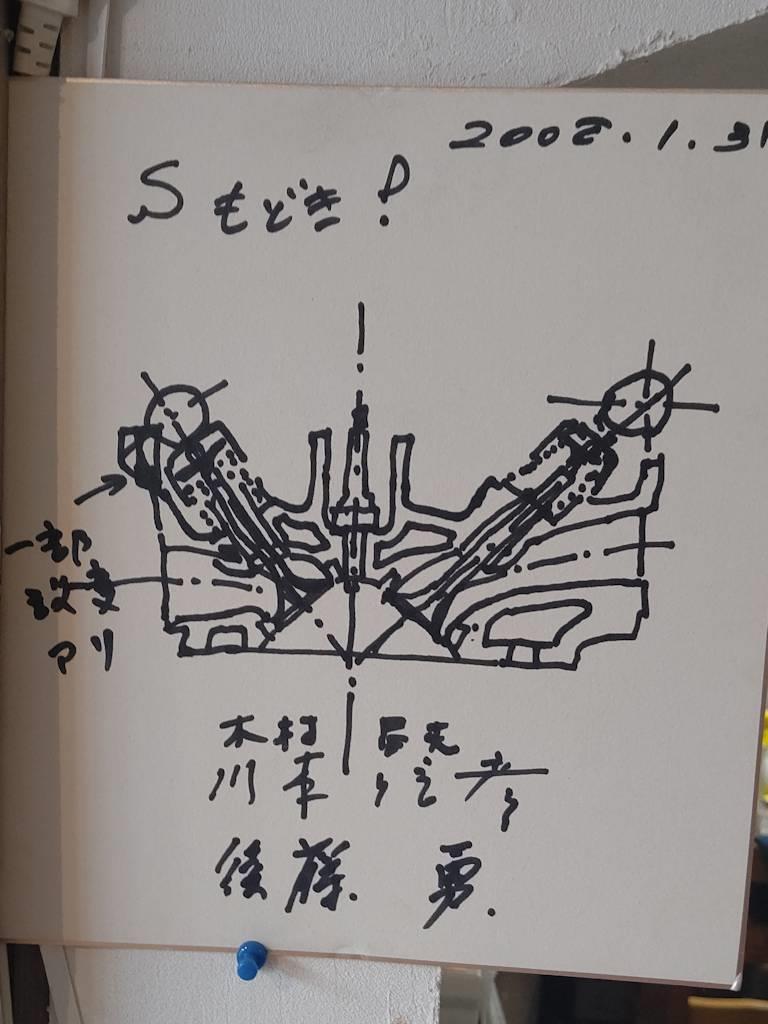 2008.1.31
Sもどき!
一部
改変
アリ
木村
川本
後藤 勇.